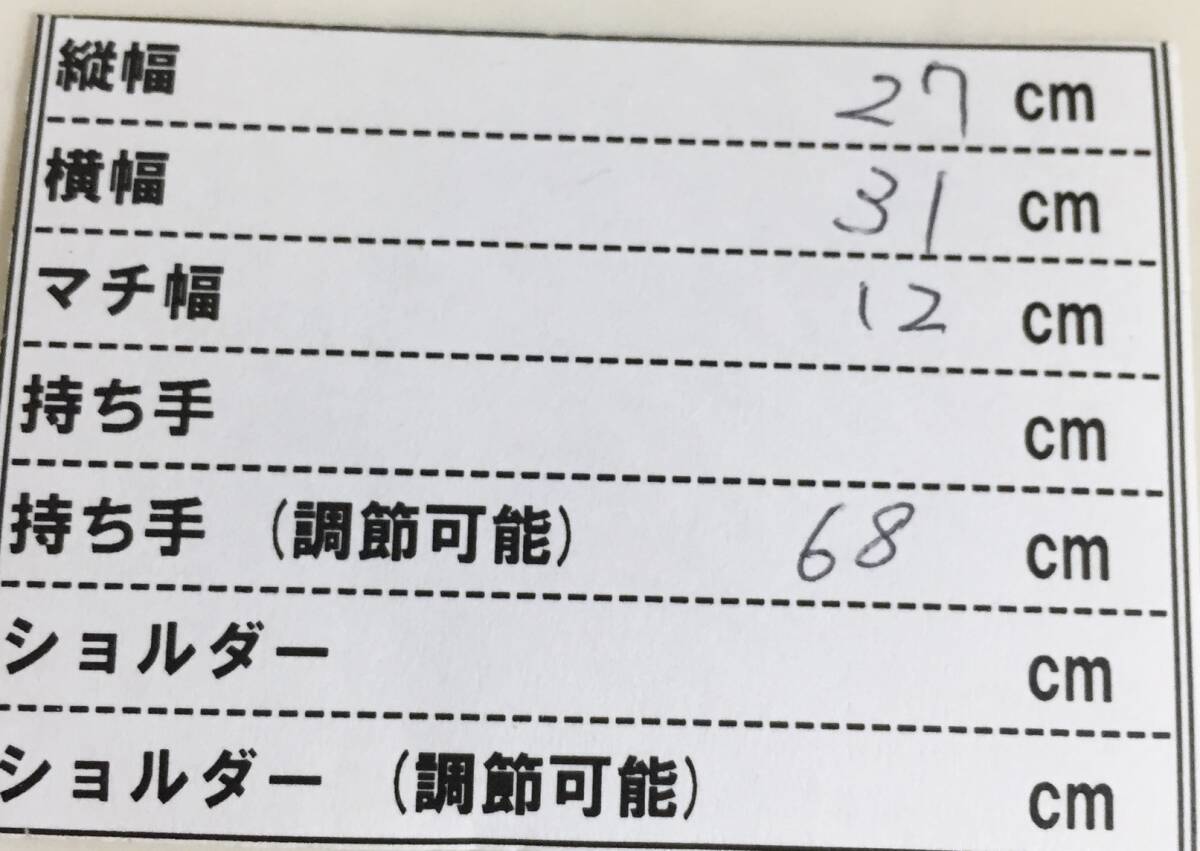 縦幅 27 cm
横幅 31 cm
マチ幅 12 cm
持ち手 cm
持ち手 (調節可能) 68 cm
ショルダー cm
ショルダー (調節可能) cm